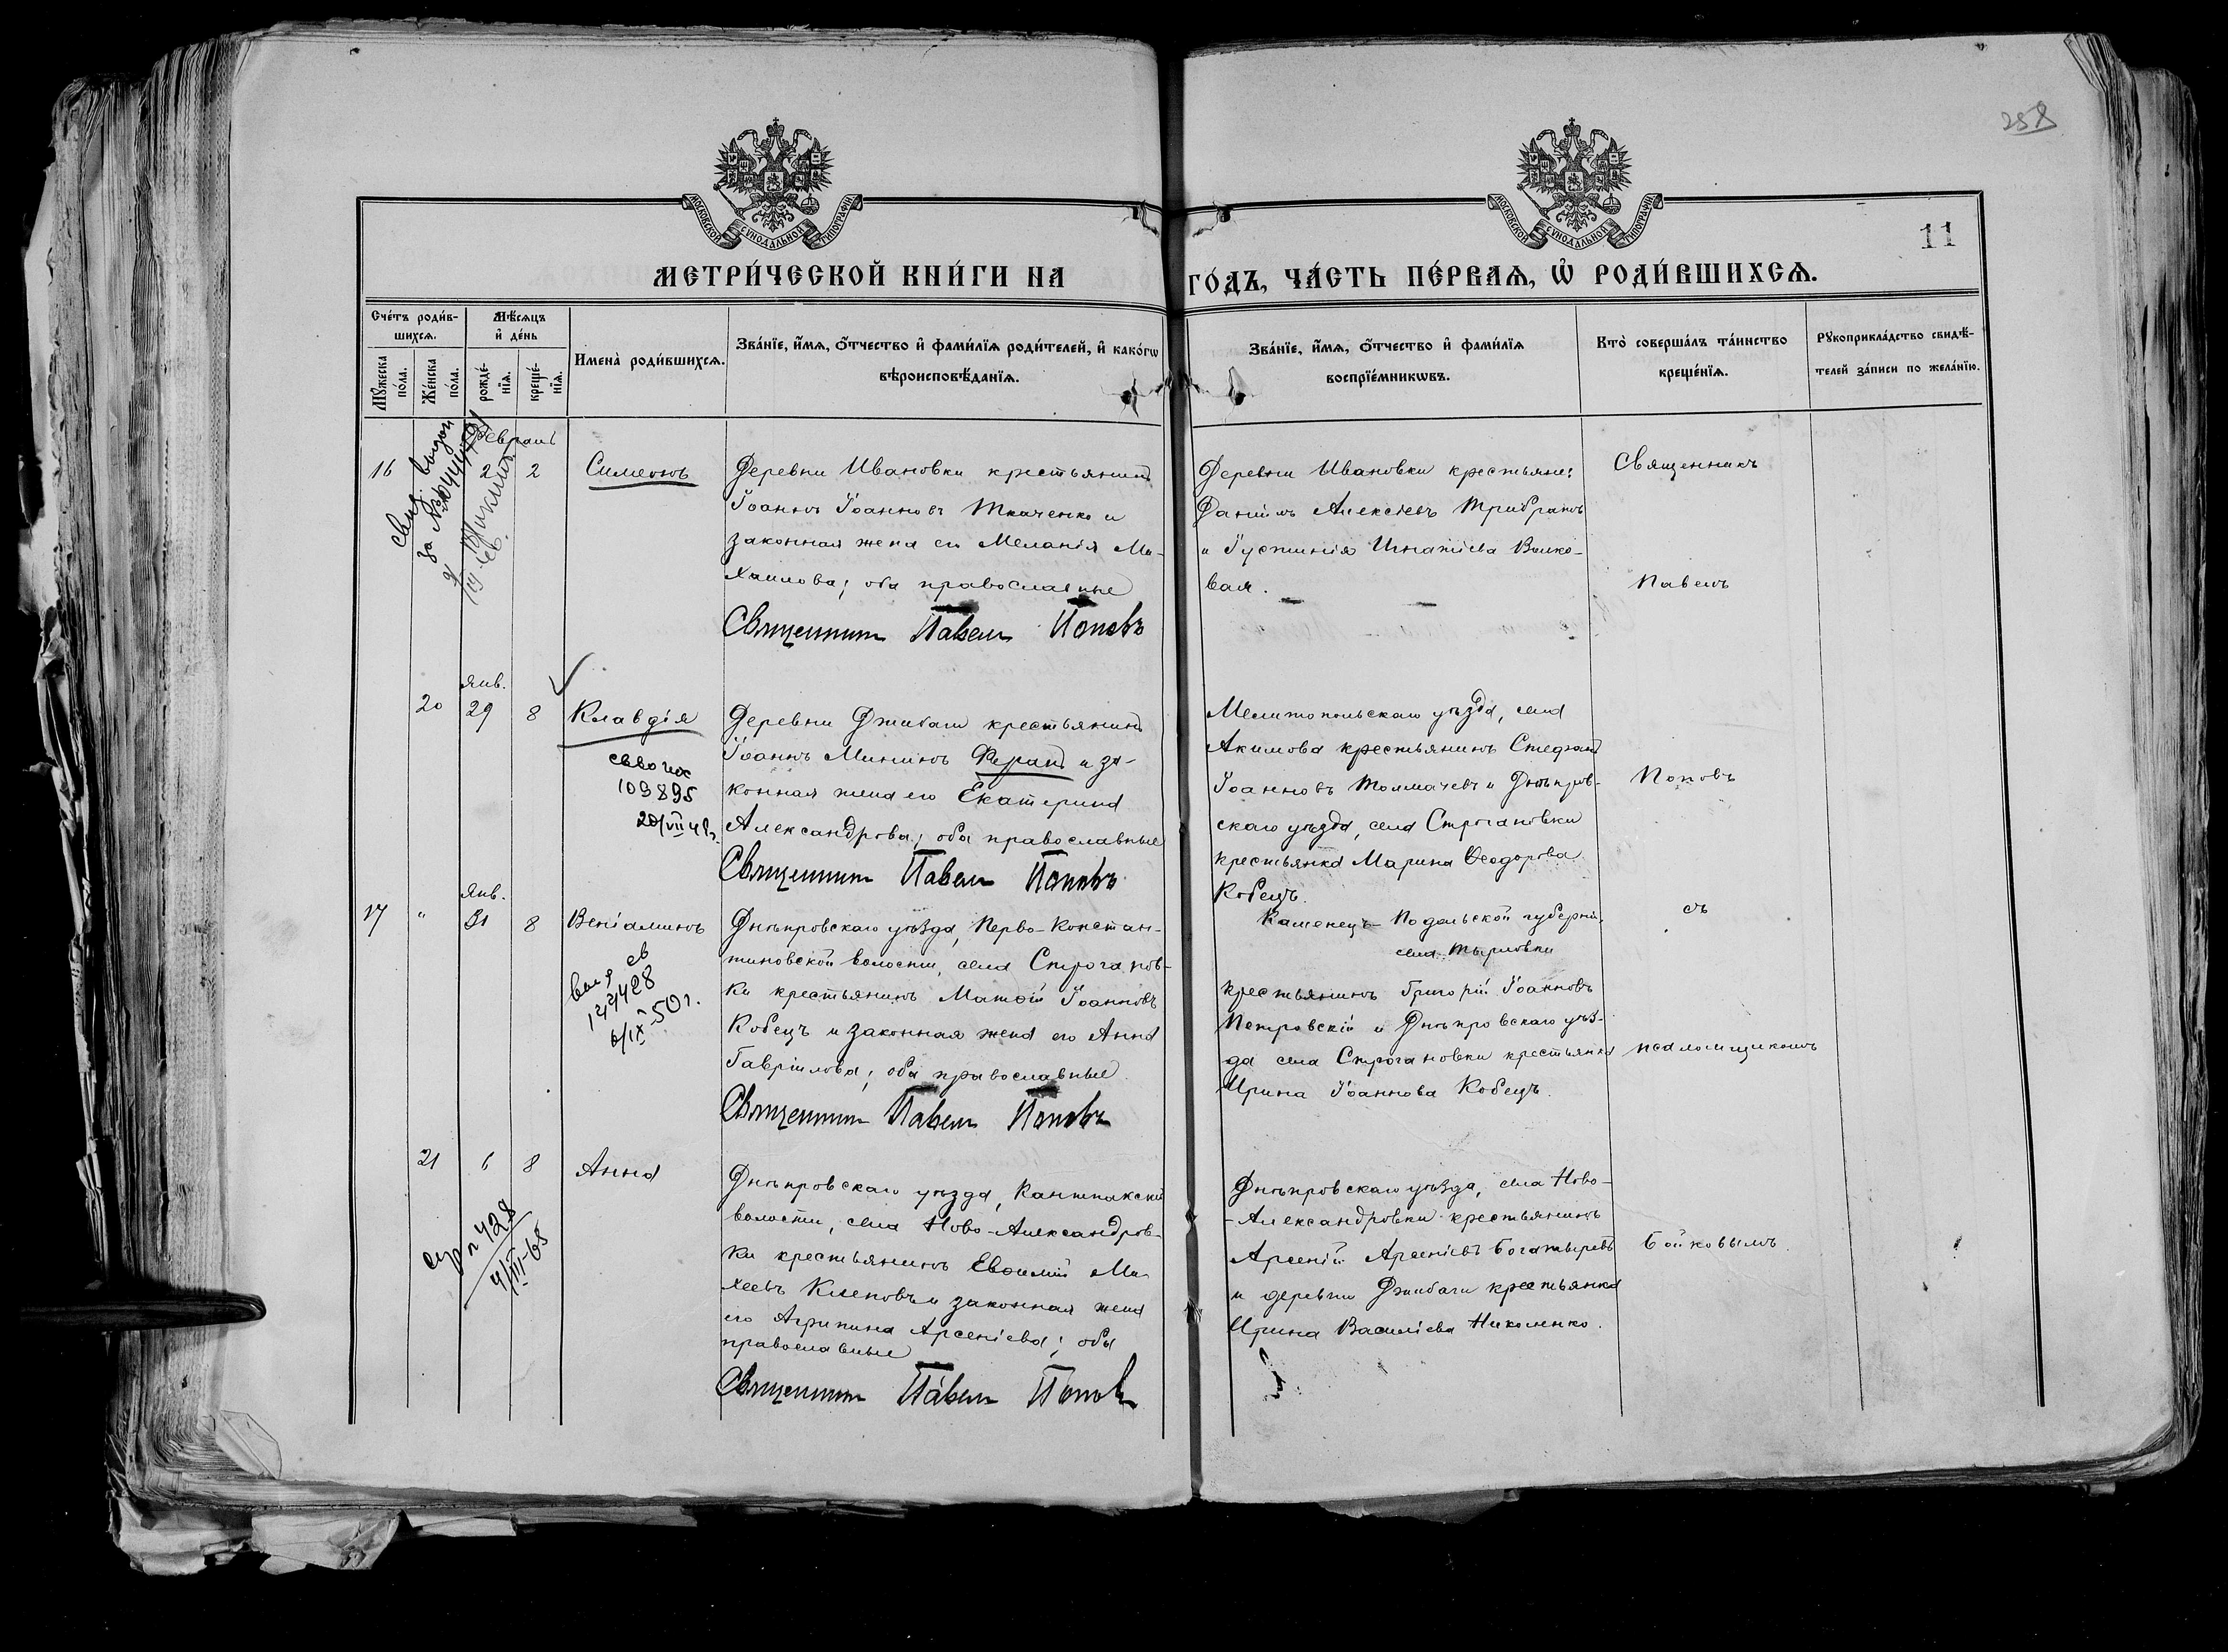 258
11
МОСКОВСКОЙ СѴНОДАЛЬНОЙ ТИПОГРАФІИ
МОСКОВСКОЙ СѴНОДАЛЬНОЙ ТИПОГРАФІИ
МЕТРИ́ЧЕСКОЙ КНИ́ГИ НА
ГО́ДЪ, ЧА́СТЬ ПЕ́РВАѦ, Ѡ҆ РОДИ́ВШИХСѦ.
Сче́тъ роди́в-
шихсѧ.
Мꙋ́жеска по́ла.
Же́нска по́ла.
Мѣ́сѧцъ и҆ де́нь
рожде́-
нїѧ.
креще́-
нїѧ.
Имена̀ роди́вшихсѧ.
Зва́нїе, и҆́мѧ, ѻ҆́тчество и҆ фами́лїѧ роди́телей, и҆ како́гѡ
вѣроисповѣ́данїѧ.
Зва́нїе, и҆́мѧ, ѻ҆́тчество и҆ фами́лїѧ
воспрїе́мникѡвъ.
Кто̀ соверша́лъ та́инство
креще́нїѧ.
Рꙋкоприкла́дство свидѣ́-
телей за́писи по жела́нїю.
Февраль
16 2 2 Симеонъ
Деревни Ивановки крестьянинъ
Іоаннъ Іоанновъ Ткаченко и
законная жена его Меланія Ми-
хаилова; оба православные
Священникъ Павелъ Поповъ
Деревни Ивановки крестьяне:
Даніилъ Алексіевъ Трибратъ
и Іустинія Игнатіева Волко-
вая.
Священникъ
Павелъ
Янв.
20 29 8 Клавдія
109895
Деревни Джибаги крестьянинъ
Іоаннъ Мининъ Феранъ и за-
конная жена его Екатерина
Александрова; оба православные
Священникъ Павелъ Поповъ
Мелитопольскаго уѣзда, села
Акимова крестьянинъ Стефанъ
Іоанновъ Толмачевъ и Днѣпров-
скаго уѣзда, села Строгановки
крестьянка Марина Ѳеодорова
Кобецъ.
Поповъ
Янв.
17 " 31 8 Веніаминъ
6/IX-50 г.
Днѣпровскаго уѣзда, Перво-Констан-
тиновской волости, села Строганов-
ки крестьянинъ Матѳій Іоанновъ
Кобецъ и законная жена его Анна
Гавріилова; оба православные.
Священникъ Павелъ Поповъ
Каменецъ-Подольской губерніи,
села Тырловки
крестьянинъ Григорій Іоанновъ
Петровскій и Днѣпровскаго уѣз-
да села Строгановки крестьянка
Ирина Іоаннова Кобецъ.
съ
псаломщикомъ
21 6 8 Анна
4/III-68
Днѣпровскаго уѣзда,
волости, села Ново-Александров-
ки крестьянинъ Евѳимій Ми-
хеевъ Кленовъ и законная жена
его Агрипина Арсеніева; оба
православные
Священникъ Павелъ Поповъ
Днѣпровскаго уѣзда, села Ново-
-Александровки крестьянинъ
Арсеній Арсеніевъ Богатыревъ
и деревни Джибаги крестьянка
Ирина Василіева Николенко.
Бойковымъ.